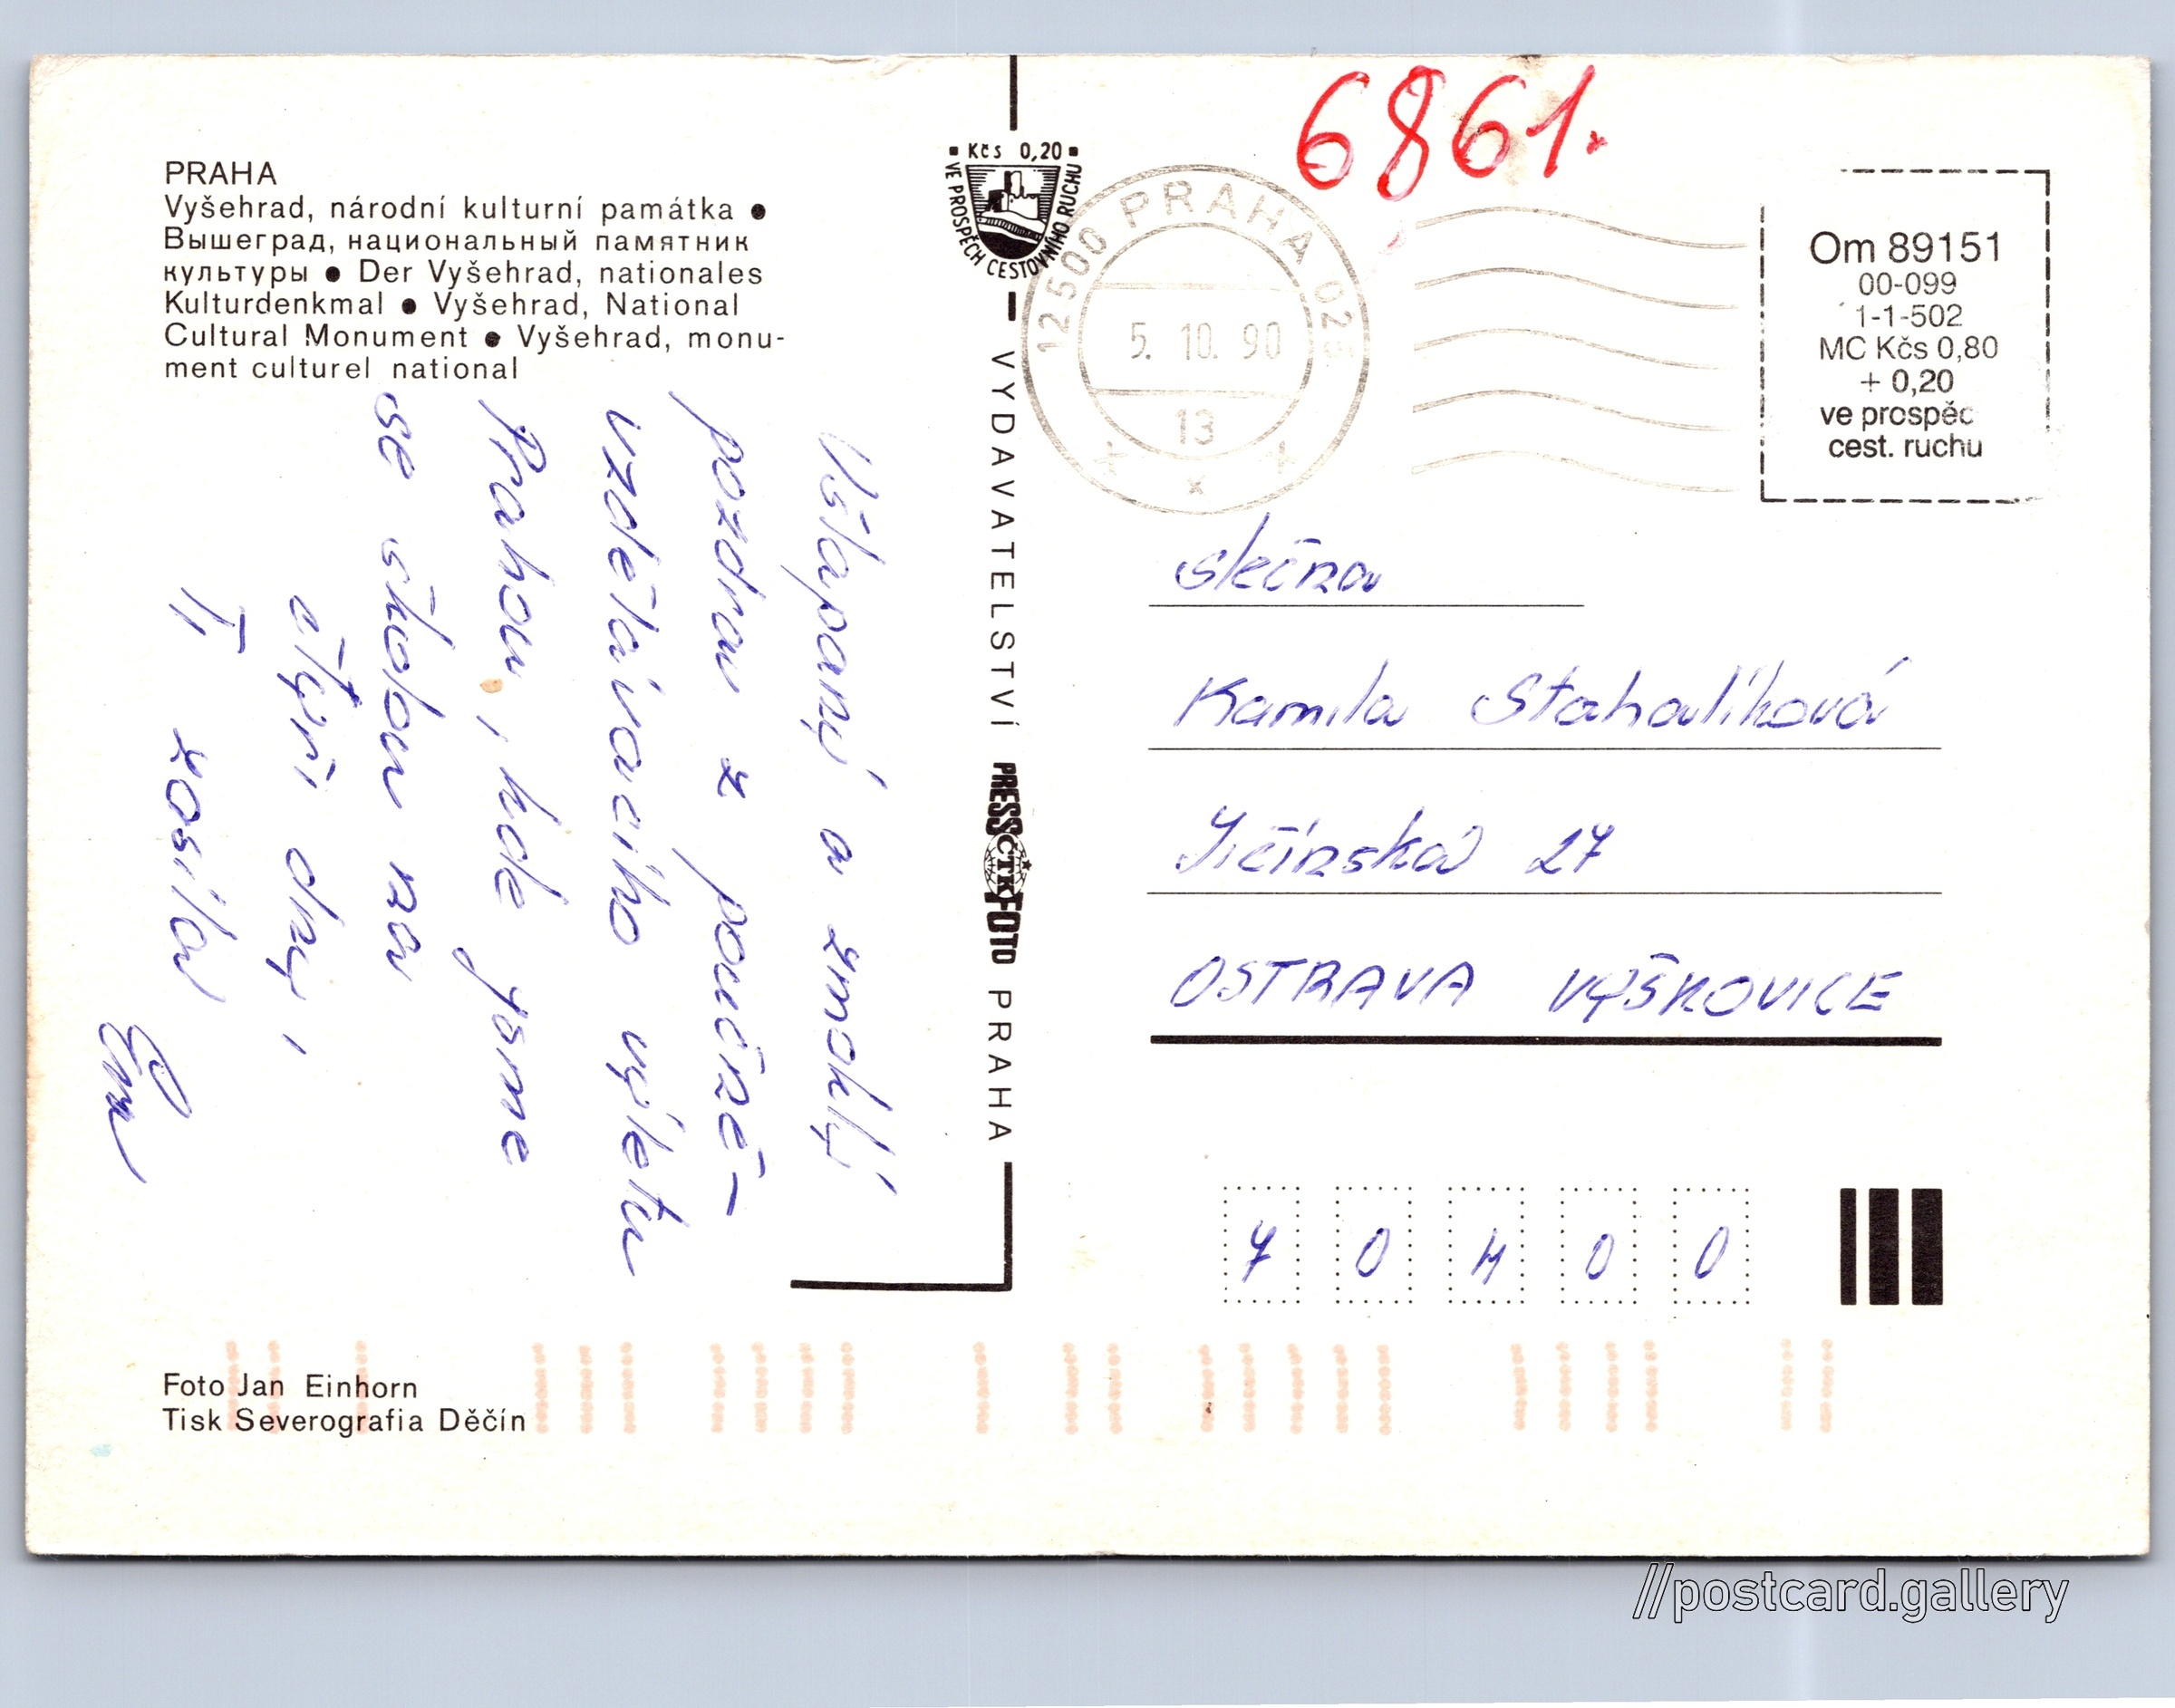 PRAHA
Vyšehrad, národní kulturní památka ●
Вышеград, национальный памятник
культуры ● Der Vyšehrad, nationales
Kulturdenkmal ● Vyšehrad, National
Cultural Monument ● Vyšehrad, monu-
ment culturel national
Ušlapaný a zmoklý
pozdrav z poučně-
vzdělávacího výletu
Prahou, kde jsme
se školou na
čtyři dny,
Ti zasílá
Foto Jan Einhorn
Tisk Severografia Děčín
Kčs 0,20
VE PROSPĚCH CESTOVNÍHO RUCHU
VYDAVATELSTVÍ PRESSČTKFOTO PRAHA
6861.
12500 PRAHA 025
5. 10. 90
13
Om 89151
00-099
1-1-502
MC Kčs 0,80
+ 0,20
ve prospěc
cest. ruchu
slečna
Kamila Stahalíková
Jičínská 27
OSTRAVA VÝŠKOVICE
7 0 4 0 0
//postcard.gallery